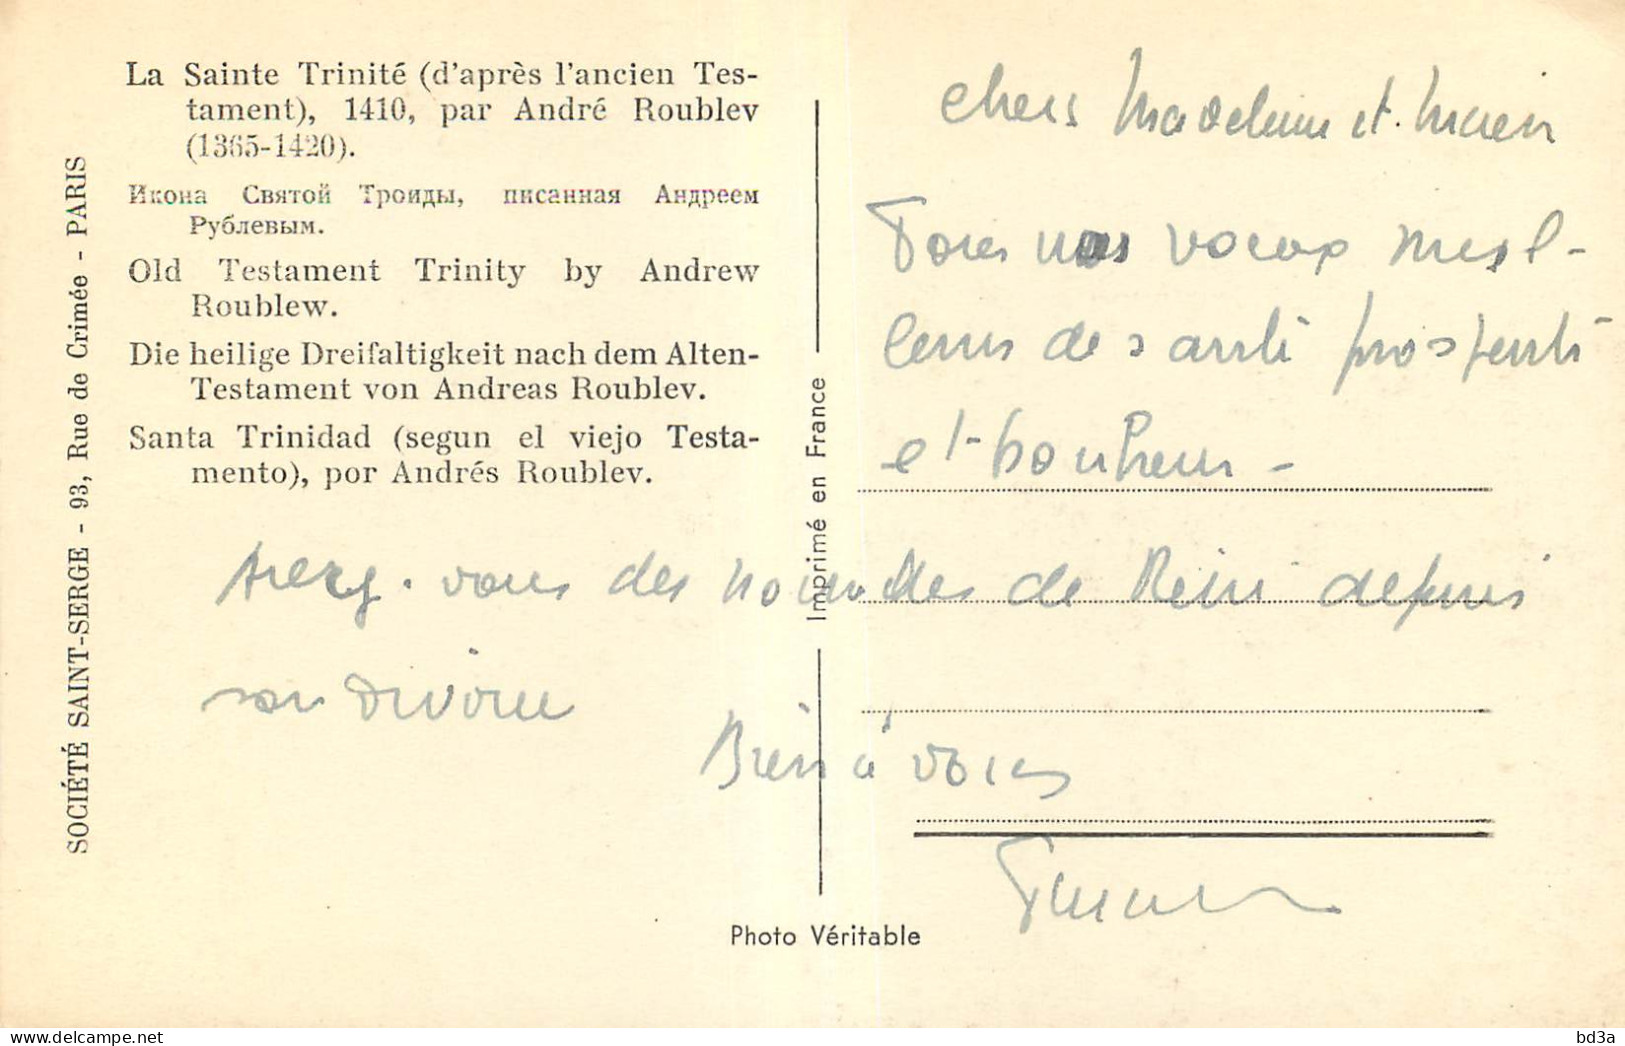 La Sainte Trinité (d'après l'ancien Tes-
tament), 1410, par André Roublev
(1365-1420).
Икона Святой Троицы, писанная Андреем
Рублевым.
Old Testament Trinity by Andrew
Roublew.
Die heilige Dreifaltigkeit nach dem Alten-
Testament von Andreas Roublev.
Santa Trinidad (segun el viejo Testa-
mento), por Andrés Roublev.
SOCIÉTÉ SAINT-SERGE - 93, Rue de Crimée - PARIS
Imprimé en France
chers Madeleine et
Tous nos voeux meil-
leurs de santé prospérité
et bonheur -
Avez-vous des nouvelles de depuis
son divorce
Bien à vous
Photo Véritable
delcampe.net
bd3a